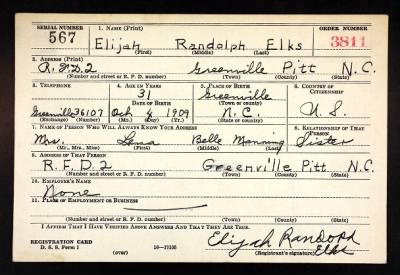 SERIAL NUMBER 1. NAME (Print) ORDER NUMBER
567 Elijah Randolph Elks 3811
(First) (Middle) (Last)
2. ADDRESS (Print)
R.F.D.2 Greenville Pitt N.C.
(Number and street or R. F. D. number) (Town) (County) (State)
3. TELEPHONE 4. AGE IN YEARS 5. PLACE OF BIRTH 6. COUNTRY OF CITIZENSHIP
31 Greenville
DATE OF BIRTH (Town or county)
Greenville 36107 Oct 4 1909 N.C. U.S.
(Exchange) (Number) (Mo.) (Day) (Yr.) (State or country)
7. NAME OF PERSON WHO WILL ALWAYS KNOW YOUR ADDRESS 8. RELATIONSHIP OF THAT PERSON
Mrs. Belle Manning Sister
(Mr., Mrs., Miss) (First) (Middle) (Last)
9. ADDRESS OF THAT PERSON
R.F.D.2 Greenville Pitt N.C.
(Number and street or R. F. D. number) (Town) (County) (State)
10. EMPLOYER'S NAME
None
11. PLACE OF EMPLOYMENT OR BUSINESS
(Number and street or R. F. D. number) (Town) (County) (State)
I AFFIRM THAT I HAVE VERIFIED ABOVE ANSWERS AND THAT THEY ARE TRUE.
REGISTRATION CARD Elijah Randolph
D. S. S. Form 1 16—17105 Elks
(over) (Registrant's signature)